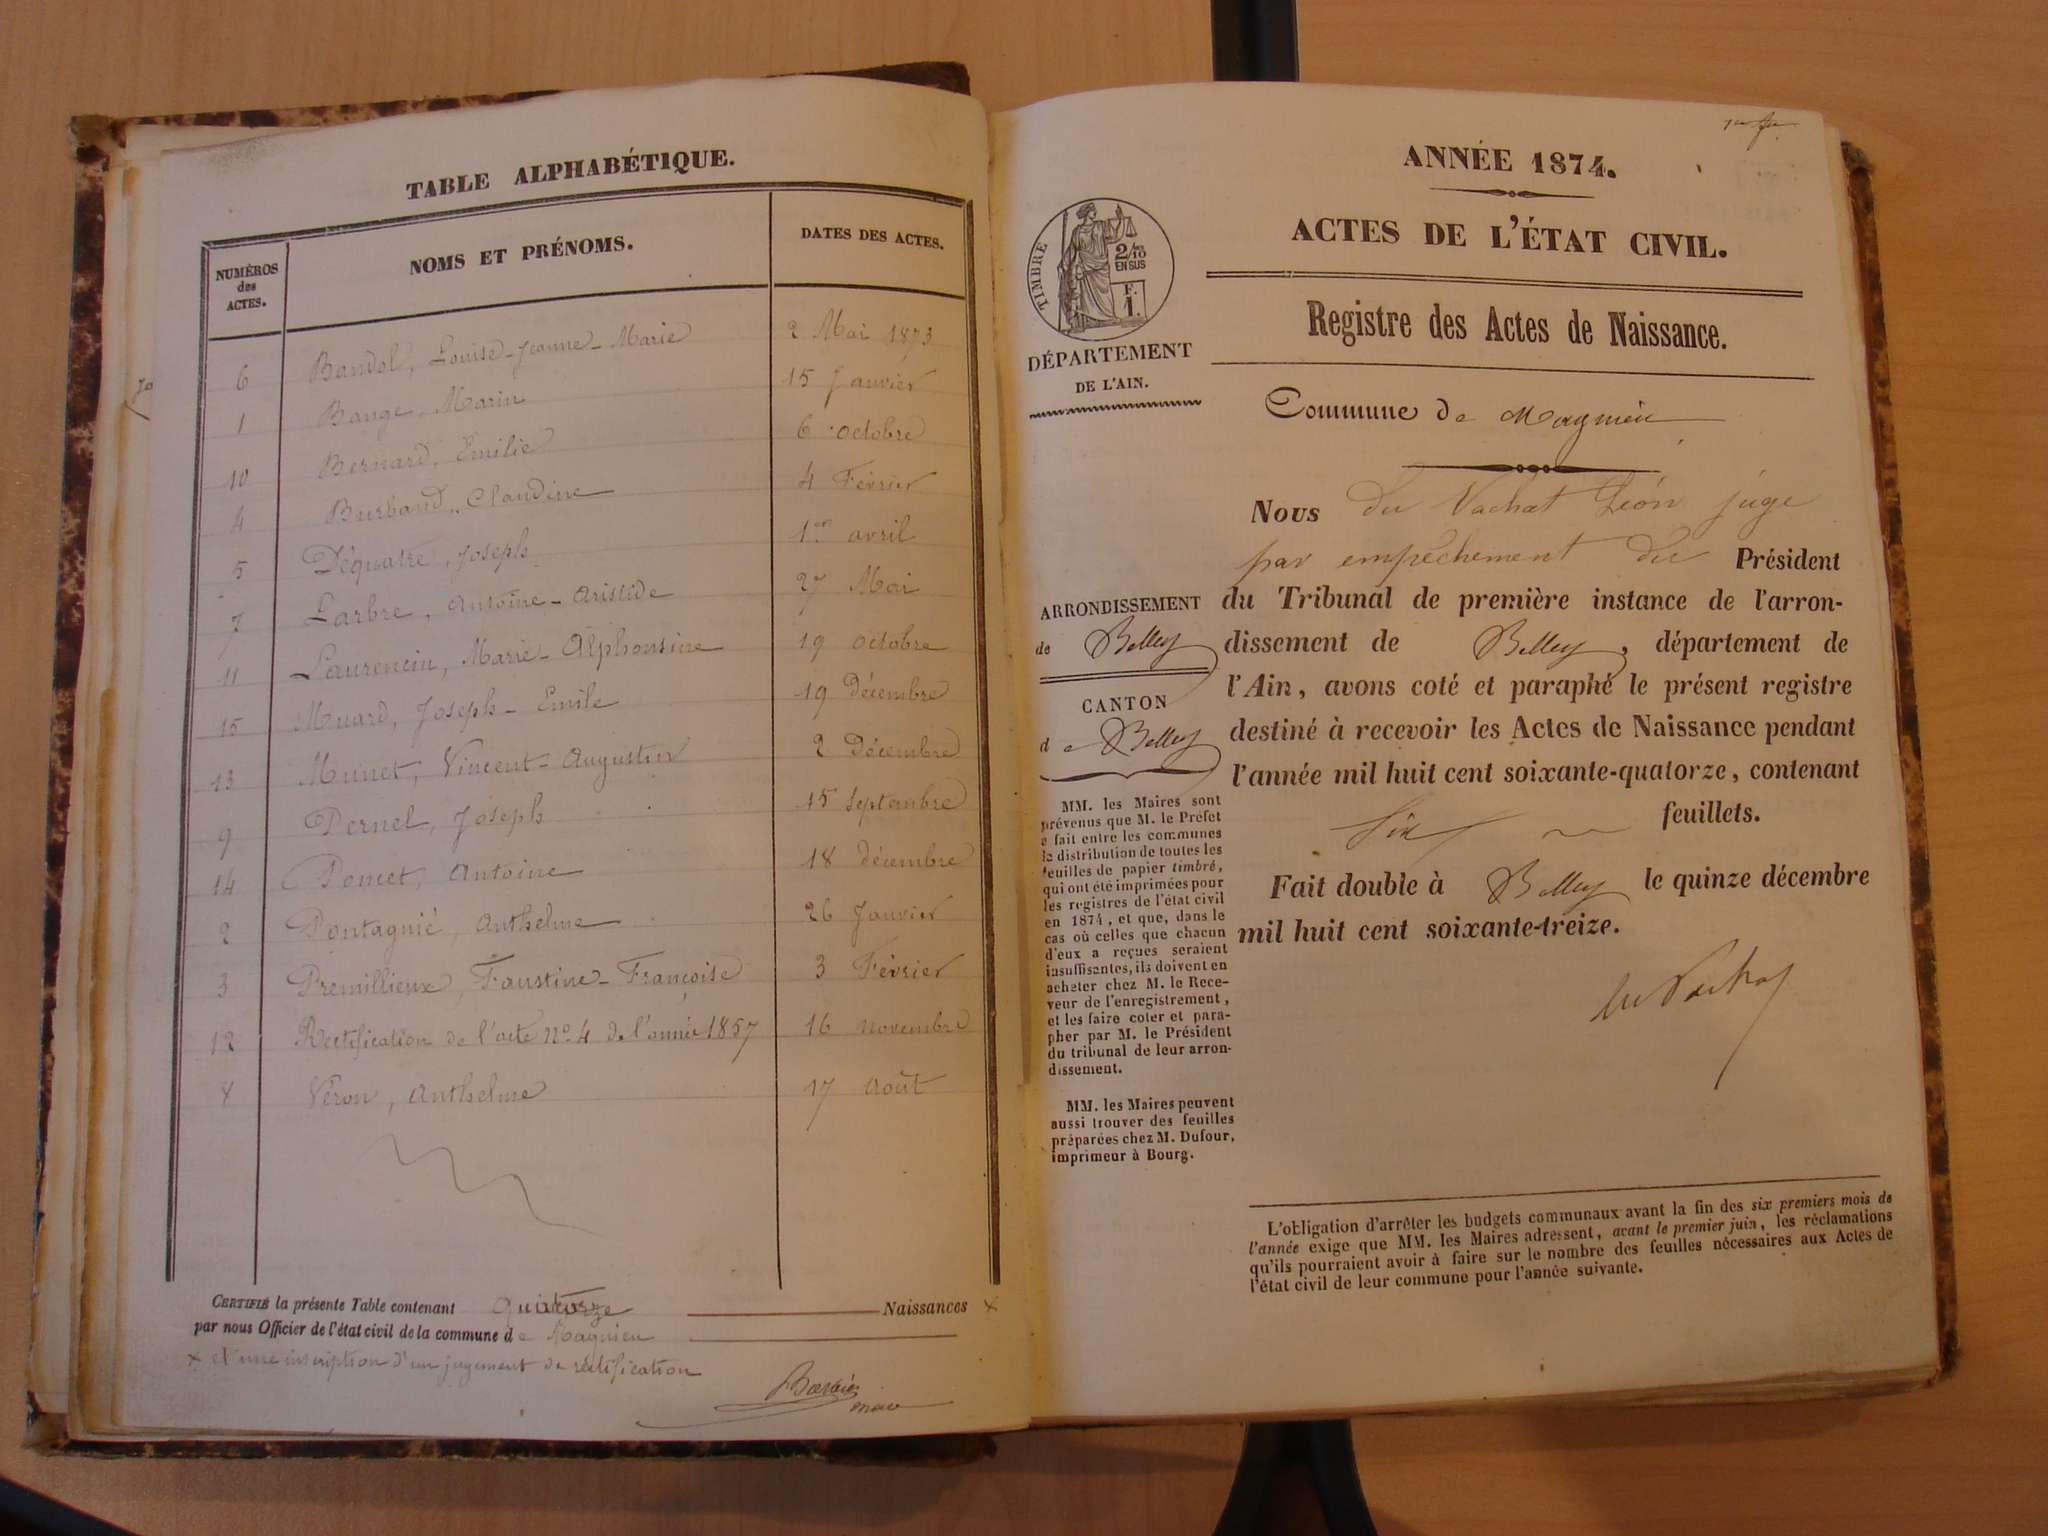 TABLE ALPHABÉTIQUE.
NUMÉROS des ACTES. NOMS ET PRÉNOMS. DATES DES ACTES.
6 Bandol, Louise-Jeanne-Marie 2 Mai 1873
1 Bange, Marin 15 Janvier
10 Bernard, Emilie 6 octobre
4 Burband, Claudine 4 Février
5 Déquatre, Joseph 1er avril
7 Larbre, Antoine-Aristide 27 Mai
11 Laurencin, Marie-Alphonsine 19 octobre
15 Muard, Joseph-Emile 19 Décembre
13 Munet, Vincent-Augustin 2 Décembre
9 Pernel, Joseph 15 Septembre
14 Poncet, Antoine 18 décembre
2 Pontagnié, Anthelme 26 Janvier
3 Premillieux, Faustine-Françoise 3 Février
12 Rectification de l'acte no. 4 de l'année 1857 16 novembre
8 Véron, Anthelme 17 Août
CERTIFIÉ la présente Table contenant quatorze Naissances x
par nous Officier de l'état civil de la commune de Magnieu
x et une inscription d'un jugement de rectification
Barbier
maire
ANNÉE 1874.
ACTES DE L'ÉTAT CIVIL.
TIMBRE
2/10
EN SUS
F.
1.
DÉPARTEMENT
DE L'AIN.
Registre des Actes de Naissance.
Commune de Magnieu
Nous du Vachat Léon juge
par empêchement du Président
du Tribunal de première instance de l'arron-
dissement de Belley, département de
l'Ain, avons coté et paraphé le présent registre
destiné à recevoir les Actes de Naissance pendant
l'année mil huit cent soixante-quatorze, contenant
six feuillets.
Fait double à Belley le quinze décembre
mil huit cent soixante-treize.
du Vachat
ARRONDISSEMENT
de Belley
CANTON
de Belley
MM. les Maires sont
prévenus que M. le Préfet
a fait entre les communes
la distribution de toutes les
feuilles de papier timbré,
qui ont été imprimées pour
les registres de l'état civil
en 1874, et que, dans le
cas où celles que chacun
d'eux a reçues seraient
insuffisantes, ils doivent en
acheter chez M. le Rece-
veur de l'enregistrement,
et les faire coter et para-
pher par M. le Président
du tribunal de leur arron-
dissement.
MM. les Maires peuvent
aussi trouver des feuilles
préparées chez M. Dufour,
imprimeur à Bourg.
L'obligation d'arrêter les budgets communaux avant la fin des six premiers mois de
l'année exige que MM. les Maires adressent, avant le premier juin, les réclamations
qu'ils pourraient avoir à faire sur le nombre des feuilles nécessaires aux Actes de
l'état civil de leur commune pour l'année suivante.